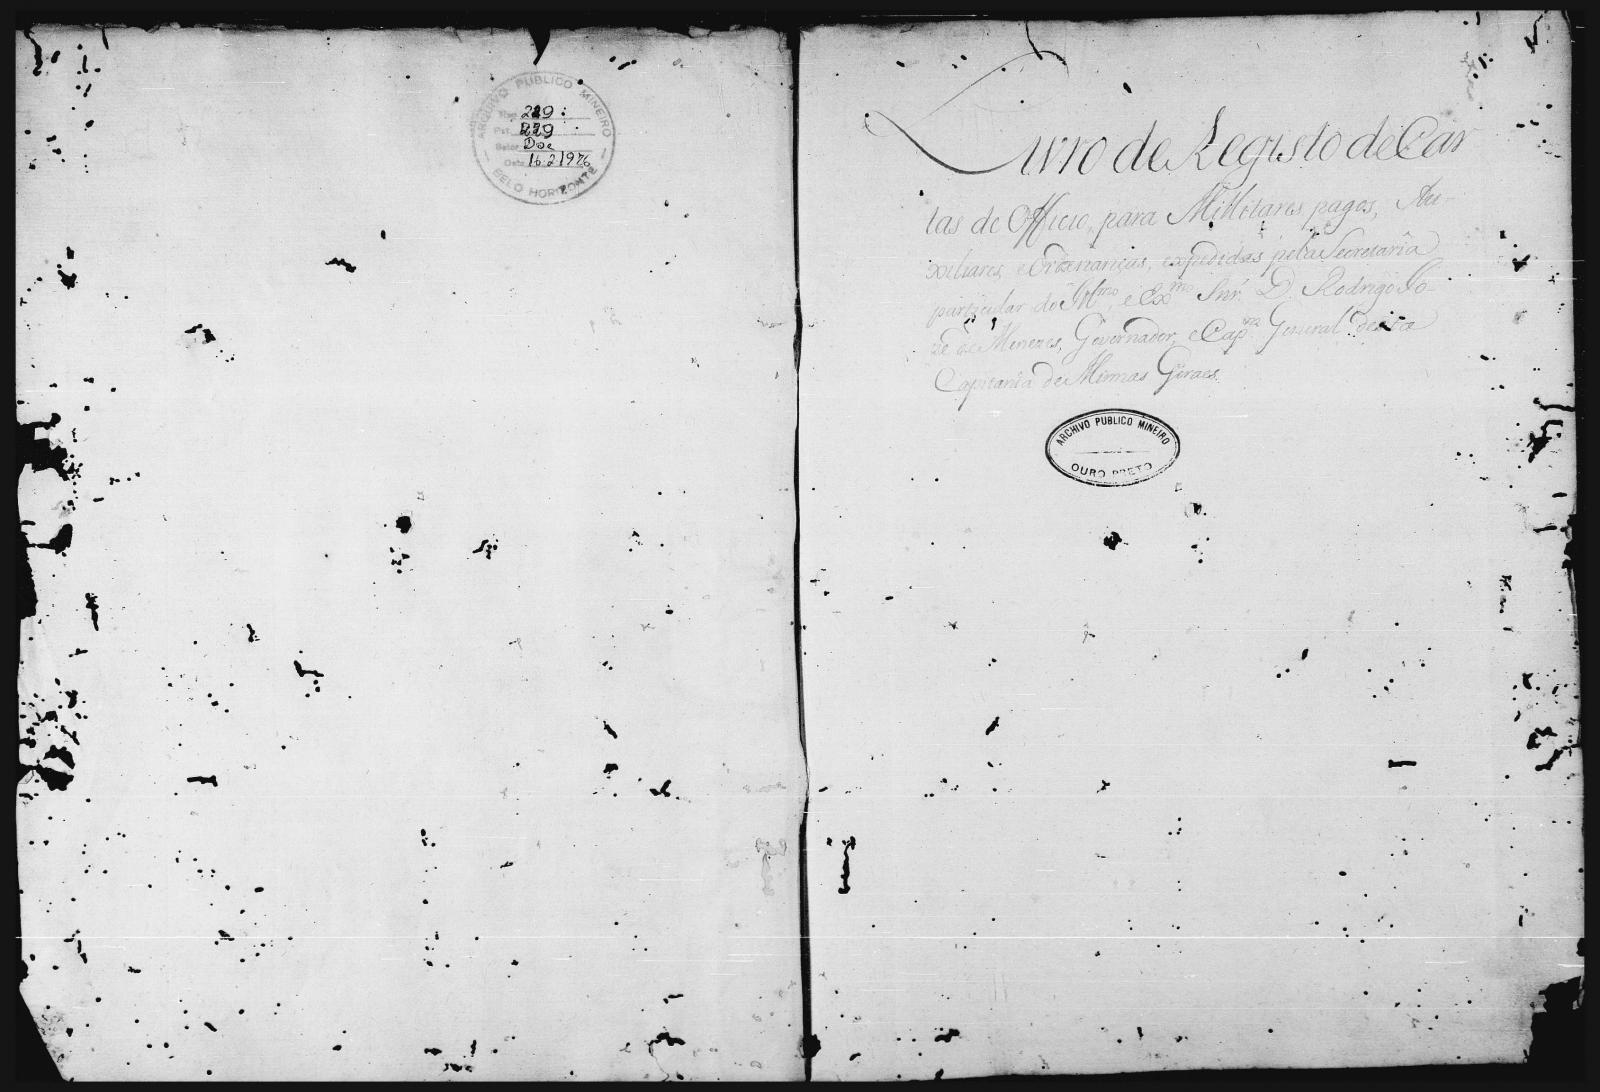 ARQUIVO PUBLICO MINEIRO
229
Pat. 229
Setor Doc
Data 16 2 1976
BELO HORIZONTE
Livro de Registo de Car
tas de Officio, para Millitares pagos, Au-
xiliares, e Ordenanças, expedidas pela Secretaria
particular do Illmo, e Exmo Snr. D. Rodrigo Jo-
zé de Menezes, Governador, e Capm General desta
Capitania de Minnas Geraes.
ARCHIVO PUBLICO MINEIRO
OURO PRETO